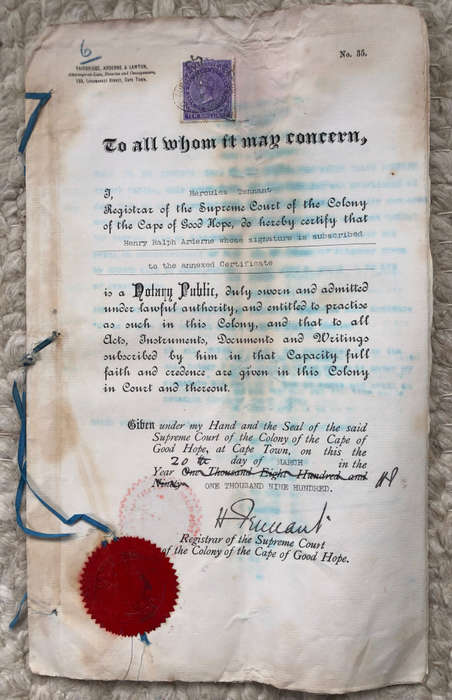 6
No. 35.
FAIRBRIDGE, ARDERNE & LAWTON,
Attorneys-at-Law, Notaries and Conveyancers,
Street, Cape Town.
To all whom it may concern,
I, Hercules Tennant
Registrar of the Supreme Court of the Colony
of the Cape of Good Hope, do hereby certify that
Henry Ralph Arderne whose signature is subscribed
to the Annexed Certificate
is a Notary Public, duly sworn and admitted
under lawful authority, and entitled to practise
as such in this Colony, and that to all
Acts, Instruments, Documents and Writings
subscribed by him in that Capacity full
faith and credence are given in this Colony
in Court and thereout.
Given under my Hand and the Seal of the said
Supreme Court of the Colony of the Cape of
Good Hope, at Cape Town, on this the
20th day of MARCH in the
Year One Thousand Eight Hundred and
Ninety ONE THOUSAND NINE HUNDRED.
H Tennant
Registrar of the Supreme Court
of the Colony of the Cape of Good Hope.